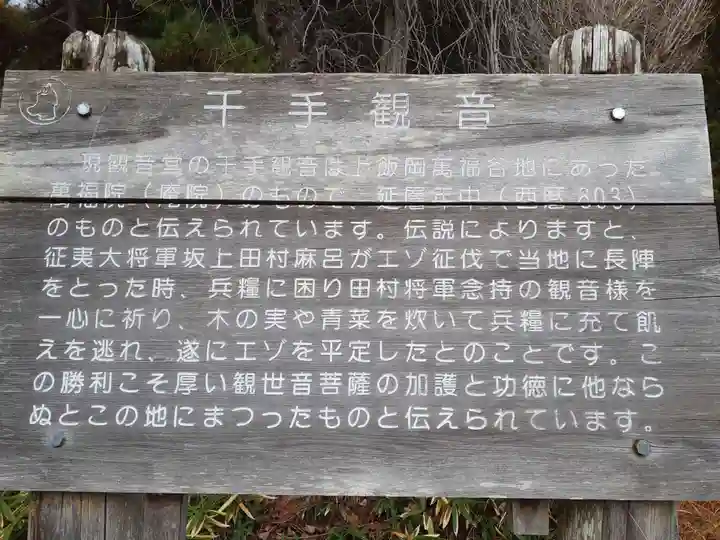 千手観音
現観音堂の千手観音は上飯岡萬福谷地にあった
萬福院（廃院）のもので、延暦年中（西暦803）
のものと伝えられています。伝説によりますと、
征夷大将軍坂上田村麻呂がエゾ征伐で当地に長陣
をとった時、兵糧に困り田村将軍念持の観音様を
一心に祈り、木の実や青菜を炊いて兵糧に充て飢
えを逃れ、遂にエゾを平定したとのことです。こ
の勝利こそ厚い観世音菩薩の加護と功徳に他なら
ぬとこの地にまつったものと伝えられています。